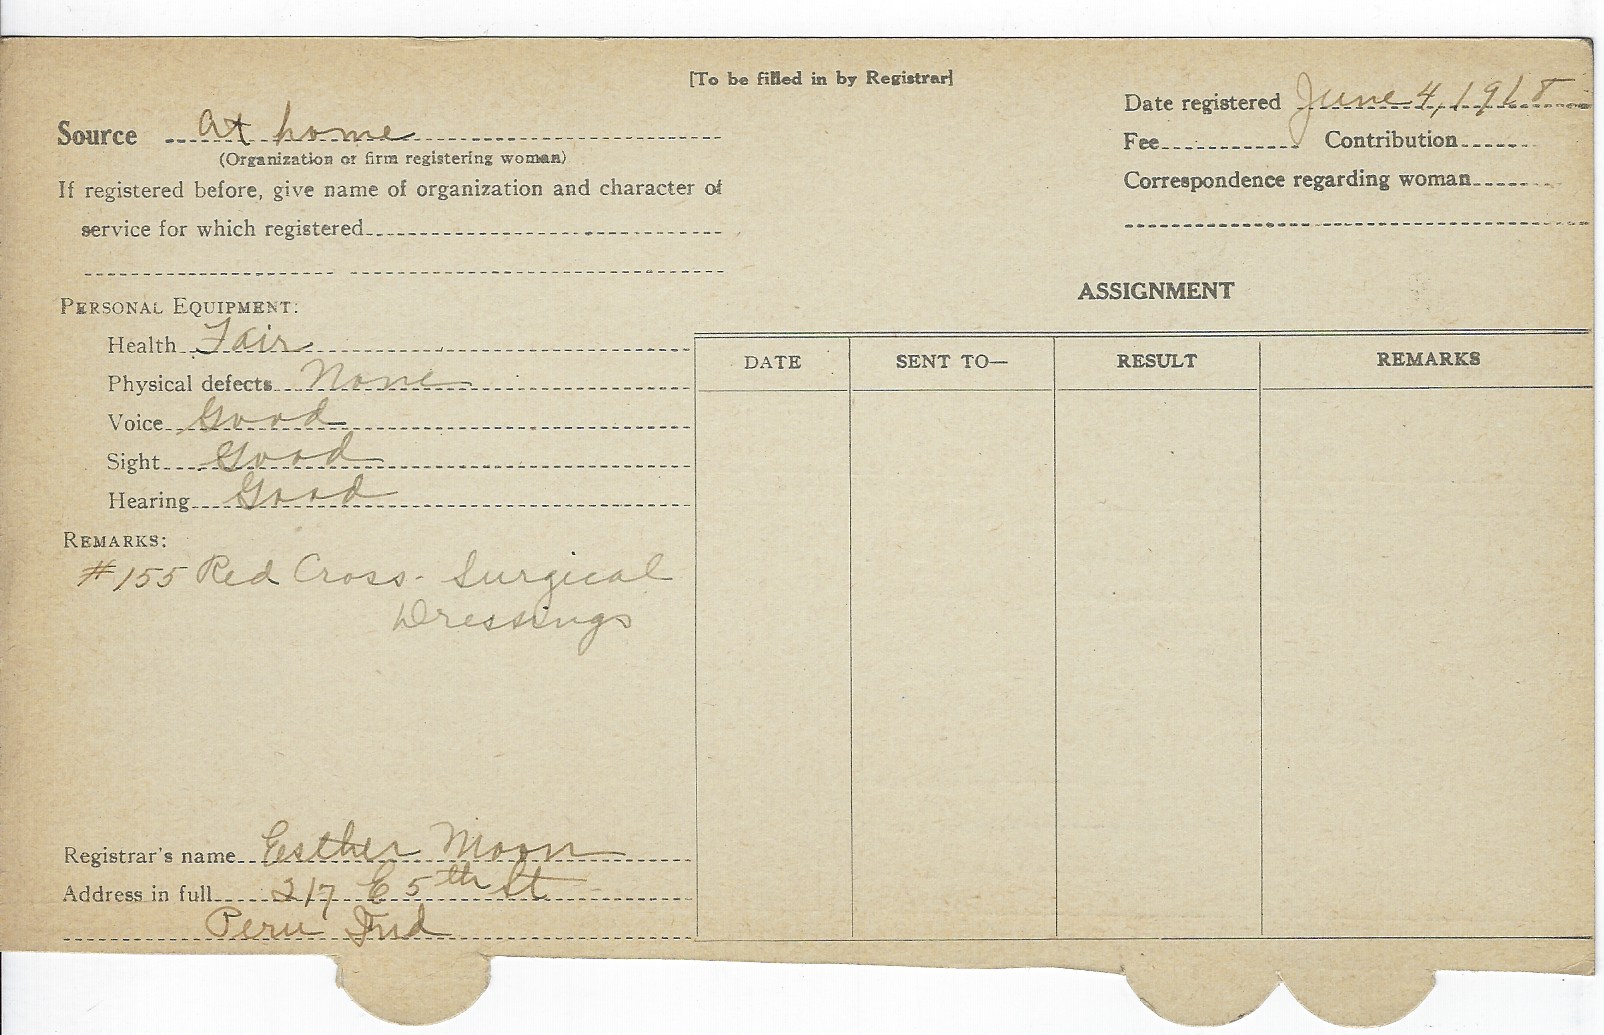 [To be filled in by Registrar]
Date registered June 4, 1918
Source At home
(Organization or firm registering woman)
Fee Contribution
If registered before, give name of organization and character of
Correspondence regarding woman
service for which registered
PERSONAL EQUIPMENT:
Health Fair
Physical defects None
Voice Good
Sight Good
Hearing Good
REMARKS:
#155 Red Cross - Surgical
Dressings
Registrar's name Esther Moon
Address in full 217 E 5th St
Peru Ind
ASSIGNMENT
DATE SENT TO— RESULT REMARKS